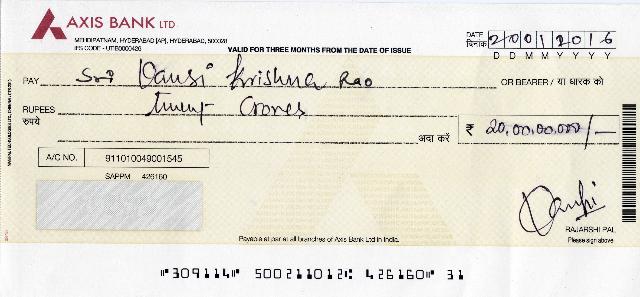 AXIS BANK LTD
MEHDIPATNAM, HYDERABAD [AP], HYDERABAD, 500028
IFS CODE - UTIB0000426
VALID FOR THREE MONTHS FROM THE DATE OF ISSUE
DATE दिनांक 20012016
D D M M Y Y Y Y
PAY Sri Vamsi Krishna Rao OR BEARER / या धारक को
RUPEES रुपये Twenty Crores
अदा करें ₹ 20,00,00,000/-
A/C NO. 911010049001545
SAPPM 426160
RAJARSHI PAL
Please sign above
Payable at par at all branches of Axis Bank Ltd in India.
⑈309114⑈ 500211012⑆ 426160⑈ 31